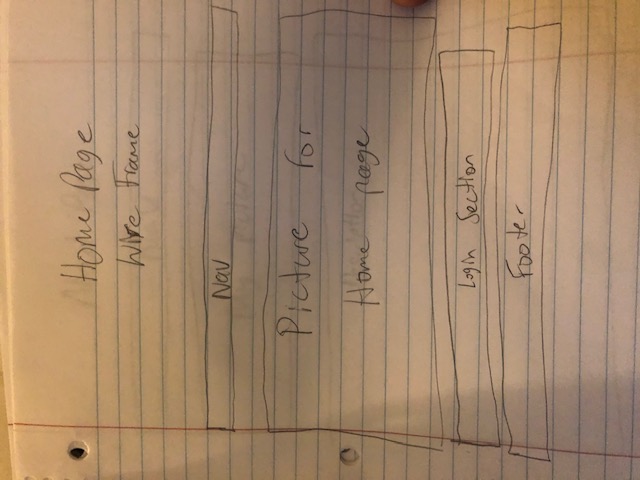 Home Page
Wire Frame
Nav
Picture for
Home page
Login Section
Footer